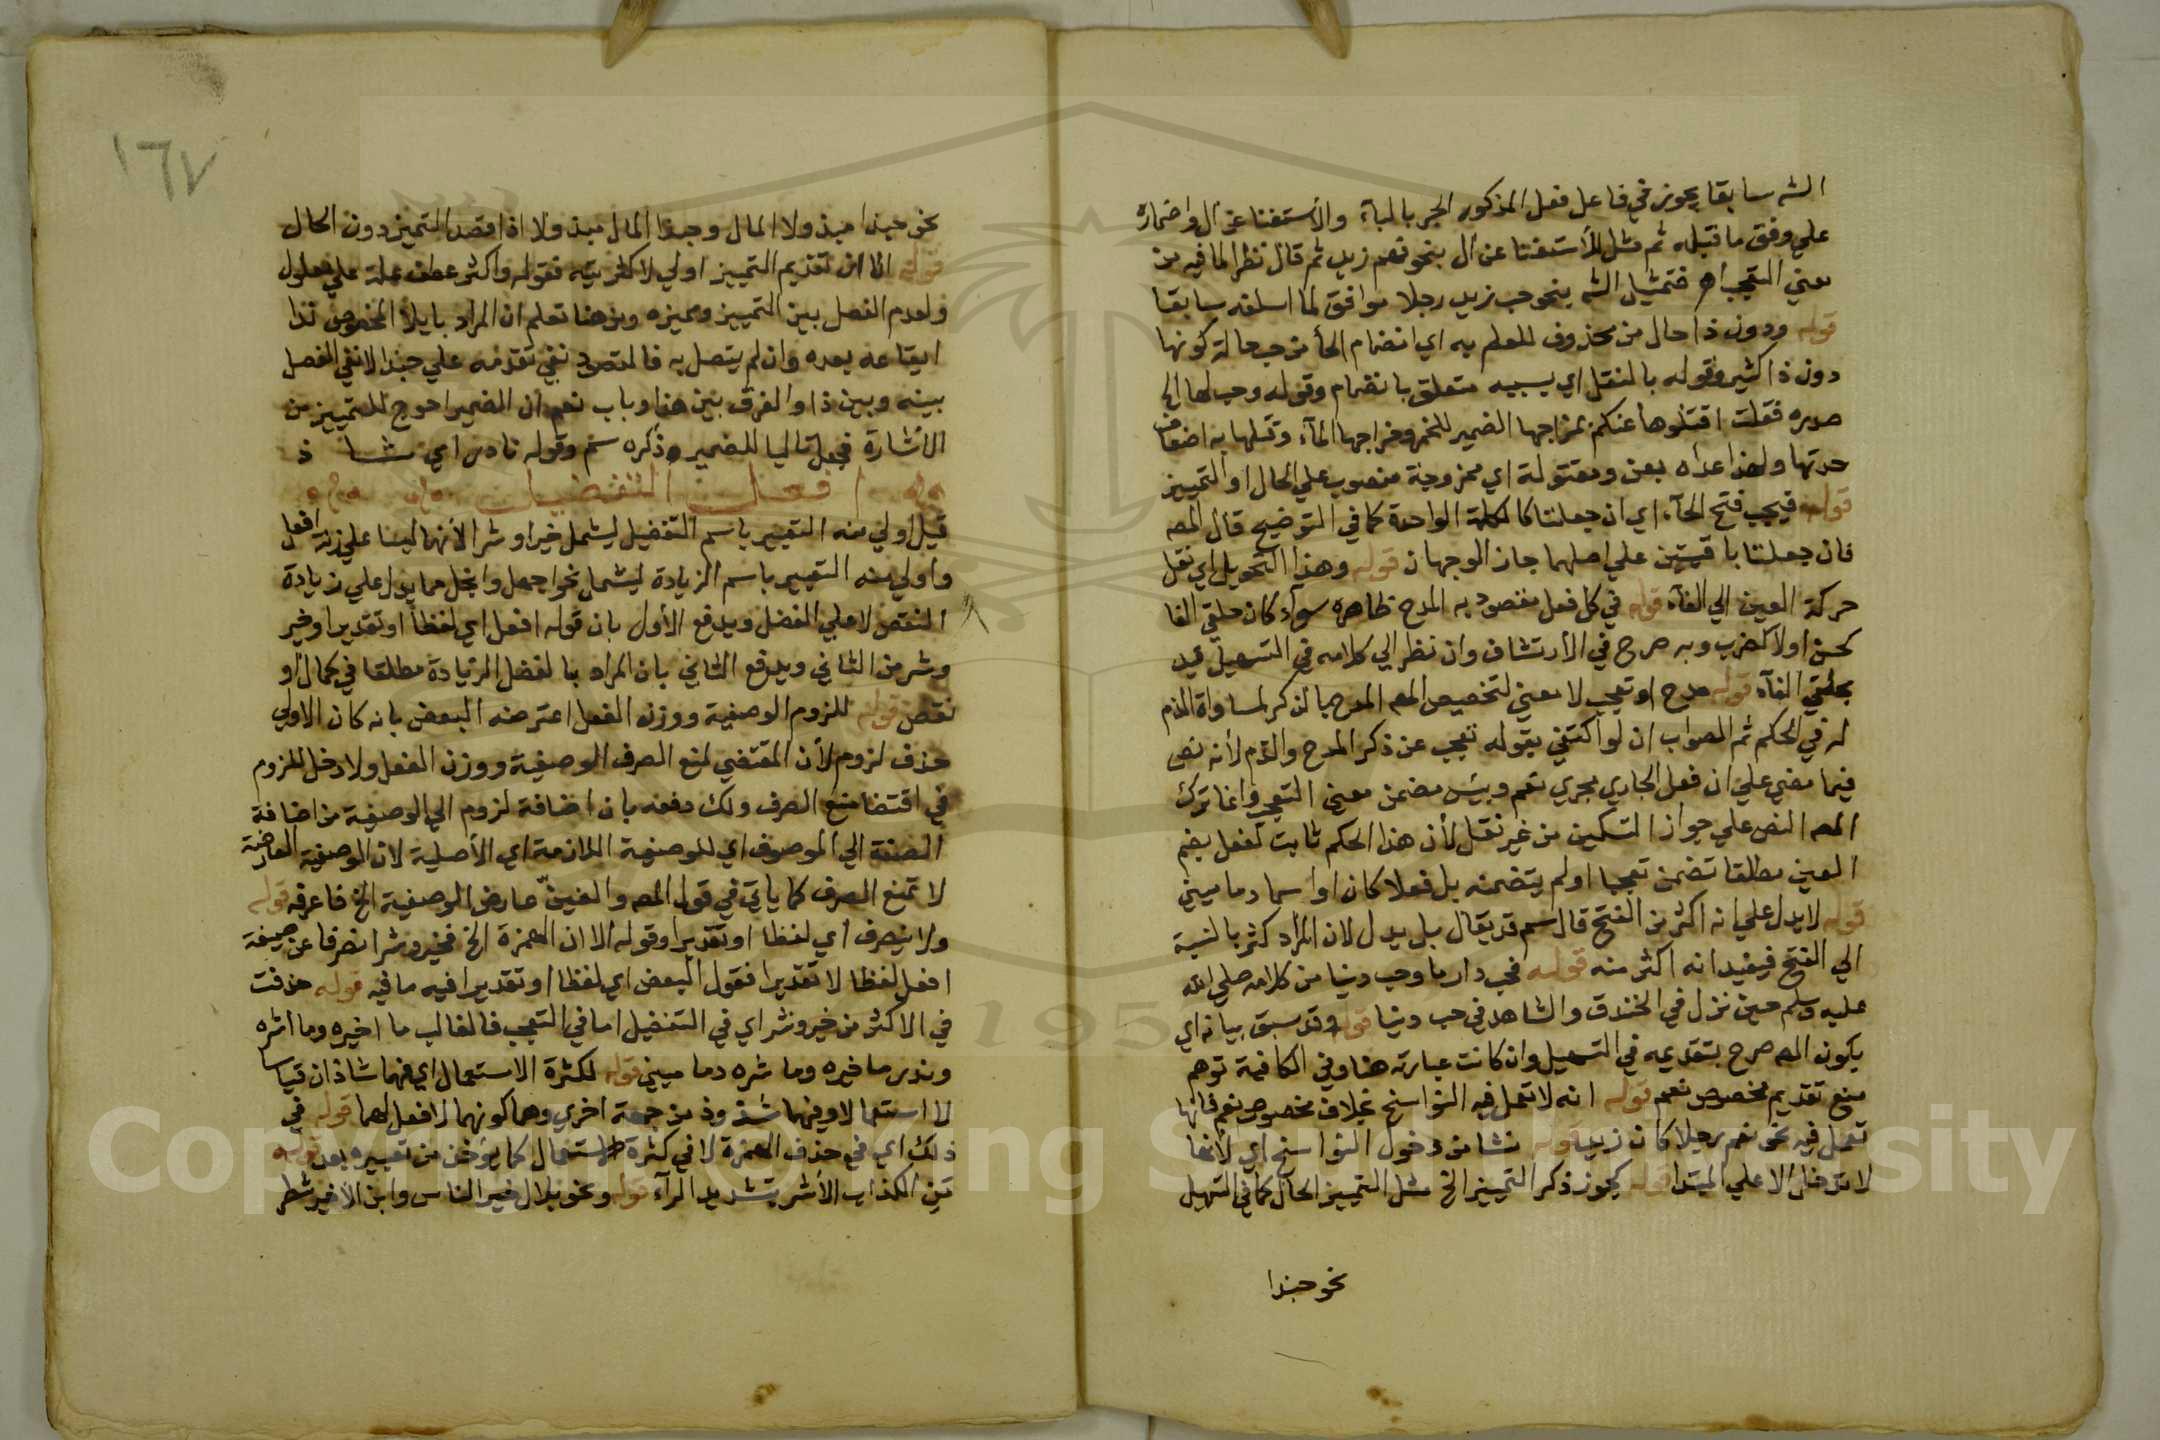 الشـ سابقا يجوز في فاعل فعل المذكور الجر بالبآء والأستغنا عن ال واضماره
علي وفق ما قبله ثم مثل للأستغنا عن ال بنحو فهم زيد ثم قال نظرا لما فيه من
معني التعجب اه فتمثيل الشـ بنحو حب زيد رجلا موافق لما اسلفه سابقا
قوله ودون ذا حال من محذوف للعلم به اي انضمام الحأ من حب حالة كونها
دون ذا كثير وقوله بالنقل اي بسببه متعلق بانضمام وقوله وحب لها الخ
صدره فقلت اقتلوها عنكم بمزاجها الضمير للخمر ومزاجها المآء وقتلها به اضعاف
حدتها ولهذا عداه بعن ومقتولة اي ممزوجة منصوب علي الحال او التمييز
قوله فيجب فتح الحآء اي ان جعلتا كالكلمة الواحدة كما في التوضيح قال المصـ
فان جعلتا باقيتين علي اصلهما جاز الوجهان قوله وهذا التحويل اي نقل
حركة العين الي الفآء قوله في كل فعل مقصود به المدح ظاهره سوآء كان حلقي الفا
كحسن اولا كضرب وبه صرح في الأرتشاف وان نظر الي كلامه في التسهيل قيد
بحلقي الفآء قوله مدح او تعجب لا معني لتخصيص المصـ المدح بالذكر لمساواة الذم
له في الحكم ثم الصواب ان لو اكتفي بقوله تعجب عن ذكر المدح والذم لأنه نص
فيما مضي علي ان فعل الجاري مجري نعم وبيئس مضمن معني التعجب وانما ترك
المصـ النص علي جواز التسكين من غير نقل لأن هذا الحكم ثابت لفعل بضم
العين مطلقا تضمن تعجبا او لم يتضمنه بل فعلا كان او اسما دماميني
قوله لا يدل علي انه اكثر من الفتح قال سم قد يقال بل يدل لان المراد كثر بالنسبة
الي الفتح فيفيد انه اكثر منه قوله فحب دار ما وحب دينا من كلامه صلي الله
عليه وسلم حين نزل في الخندق والشاهد في حب دينا قوله وقد سبق بيانه اي
يكون المصـ صرح بتقديمه في التسهيل وان كانت عبارته هنا وفي الكافية توهم
منع تقديم مخصوص نعم قوله انه لا تعمل فيه النواسخ بخلاف مخصوص نعم فانها
تعمل فيه نحو نعم رجلا كان زيد قوله نشا من دخول النواسخ اي لأنها
لا تدخل الا علي المبتدا قوله يجوز ذكر التمييز الخ مثل التمييز الحال كما في التسهيل
نحو حبذا
١٦٧
نحو حبذا مبذولا المال وحبذا المال مبذولا اذا قصد التمييز دون الحال
قوله الا ان تقديم التمييز اولي لاكثريته فقوله واكثر عطف علة علي معلول
ولعدم الفصل بين التمييز ومميزه ومن هنا تعلم ان المراد بايلأ المخصوص ذا
ايقاعه بعده وان لم يتصل به فالمقصود نفي تقدمه علي حبذا لا نفي الفصل
بينه وبين ذا والفرق بين هذا وباب نعم ان الضمير احوج للتمييز من
الأشارة فجعل تاليا للضمير وذكره سم وقوله نادر اي شاذ
افعل التفضيل
قيل اولي منه التعبير باسم التفضيل ليشمل خيرا وشرا لأنهما ليسا علي زنة افعل
واولي منه التعبير باسم الزيادة ليشمل نحو اجهل وابخل مما يدل علي زيادة
النقص لا علي الفضل ويدفع الأول بان قوله افعل اي لفظا او تقديرا وخير
وشر من الثاني ويدفع الثاني بان المراد بالفضل الزيادة مطلقا في كمال او
نقص قوله للزوم الوصفية ووزن الفعل اعترضه البعض بانه كان الاولي
حذف لزوم لأن المقتضي لمنع الصرف الوصفية ووزن الفعل ولا دخل للزوم
في اقتضا منع الصرف ولك دفعه بان اضافة لزوم الي الوصفية من اضافة
الصفة الي الموصوف اي للوصفية اللازمة اي الأصلية لان الوصفية العارضة
لا تمنع الصرف كما ياتي في قول المصـ والغين عارض الوصفية الخ فاعرفه قوله
ولا ينصرف اي لفظا او تقديرا وقوله الا ان الهمزة الخ فخير وشر انصرفا عن صيغة
افعل لفظا لا تقديرا فقول البعض اي لفظا او تقديرا فيه ما فيه قوله حذفت
في الاكثر من خير وشر اي في التفضيل اما في التعجب فالغالب ما اخيره وما اشره
وندر ما خيره وما شره دماميني قوله لكثرة الاستعمال اي فهما شاذان قياسا
لا استعمالا وفيهما شذوذ من جهة اخري وهما كونهما لا فعل لهما قوله في
ذلك اي في حذف الهمزة لا في كثرة الاستعمال كما يؤخذ من تعبيره بعد قوله
من الكذاب الأشر بتشديد الرآء قوله ونحو بلال خير الناس وابن الأخير شطر